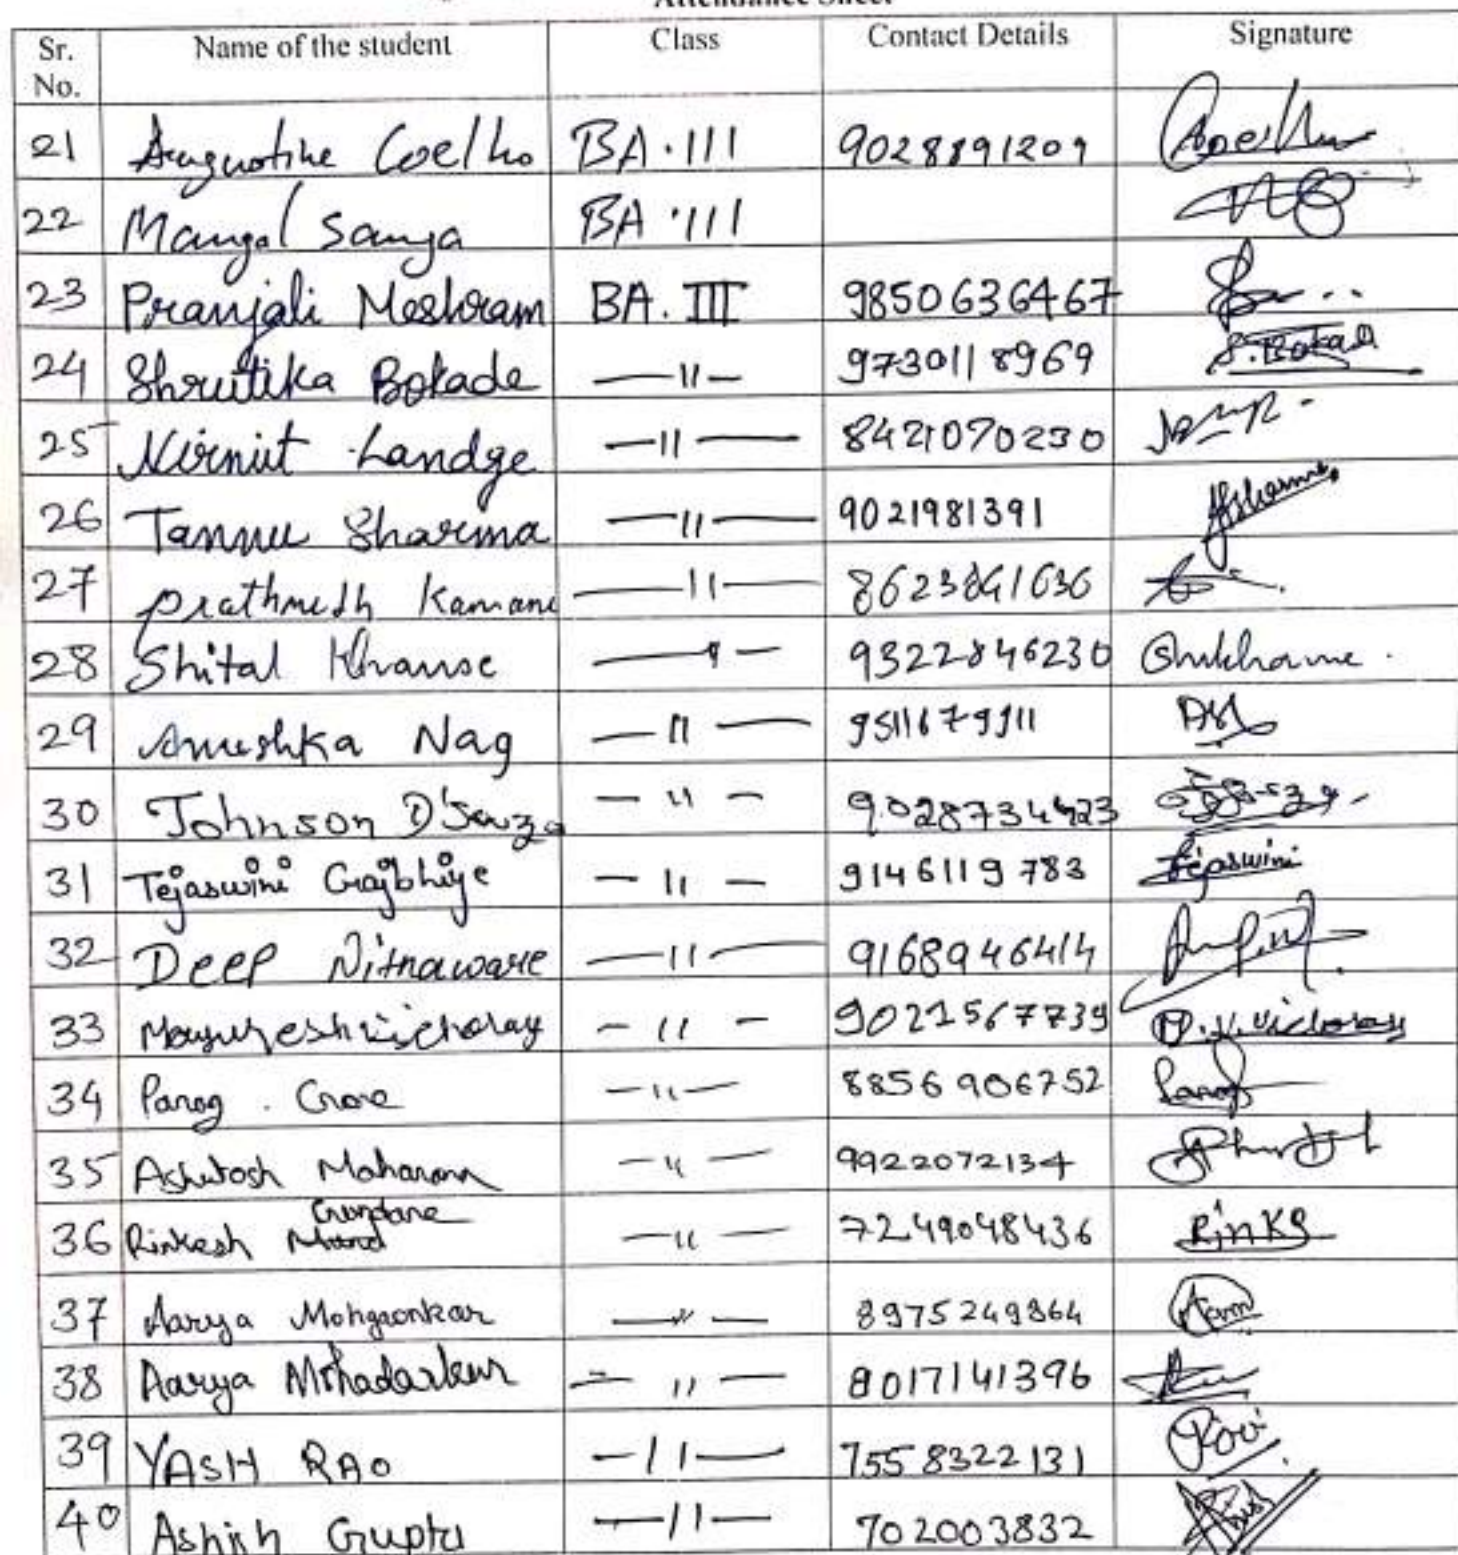 Attendance Sheet
Sr. No. Name of the student Class Contact Details Signature
21 Augustine Coelho BA.III 9028891209 Coelho
22 Mangal Sanga BA.III
23 Pranjali Meshram BA.III 9850636467
24 Shrutika Bokade —11— 9730118969 S.Bokade
25 Nirmit Landge —11— 8421070230
26 Tannu Sharma —11— 9021981391 Sharma
27 Prathmesh Kamane —11— 8623861636
28 Shital Khanse —11— 9322846230
29 Anushka Nag —11— 9511679911
30 Johnson D'Souza —11— 9028734423
31 Tejaswini Gajbhiye —11— 9146119783 Tejaswini
32 Deep Nitnaware —11— 9168946414
33 Mayuresh —11— 9021567739
34 Parag . Gore —11— 8856906752 Parag
35 Ashutosh —11— 9922072134
36 Rinkesh Gondane —11— 7249048436 Rinks
37 Aarya Mohgaonkar —11— 8975249864
38 Aarya Mohadarkar —11— 8017141396
39 YASH RAO —11— 7558322131
40 Ashish Gupta —11— 702003832